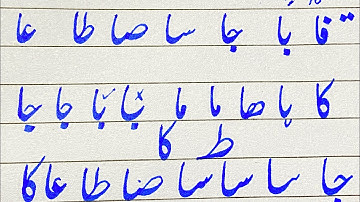 فا با جا سا صا طا عا
کا با ھا ما ما با با جا جا
کا ط
جا سا سا سا صا طا عا کا